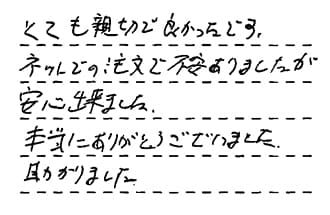 とても親切で良かったです。
ネットでの注文で不安ありましたが
安心出来ました。
本当にありがとうございました。
助かりました